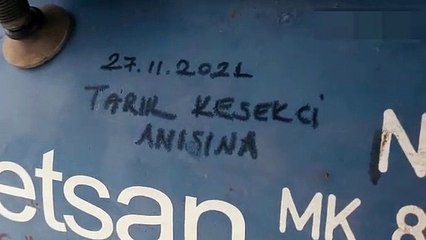 27.11.2021
TARIK KESEKCİ
ANISINA
etsan MK 8
N